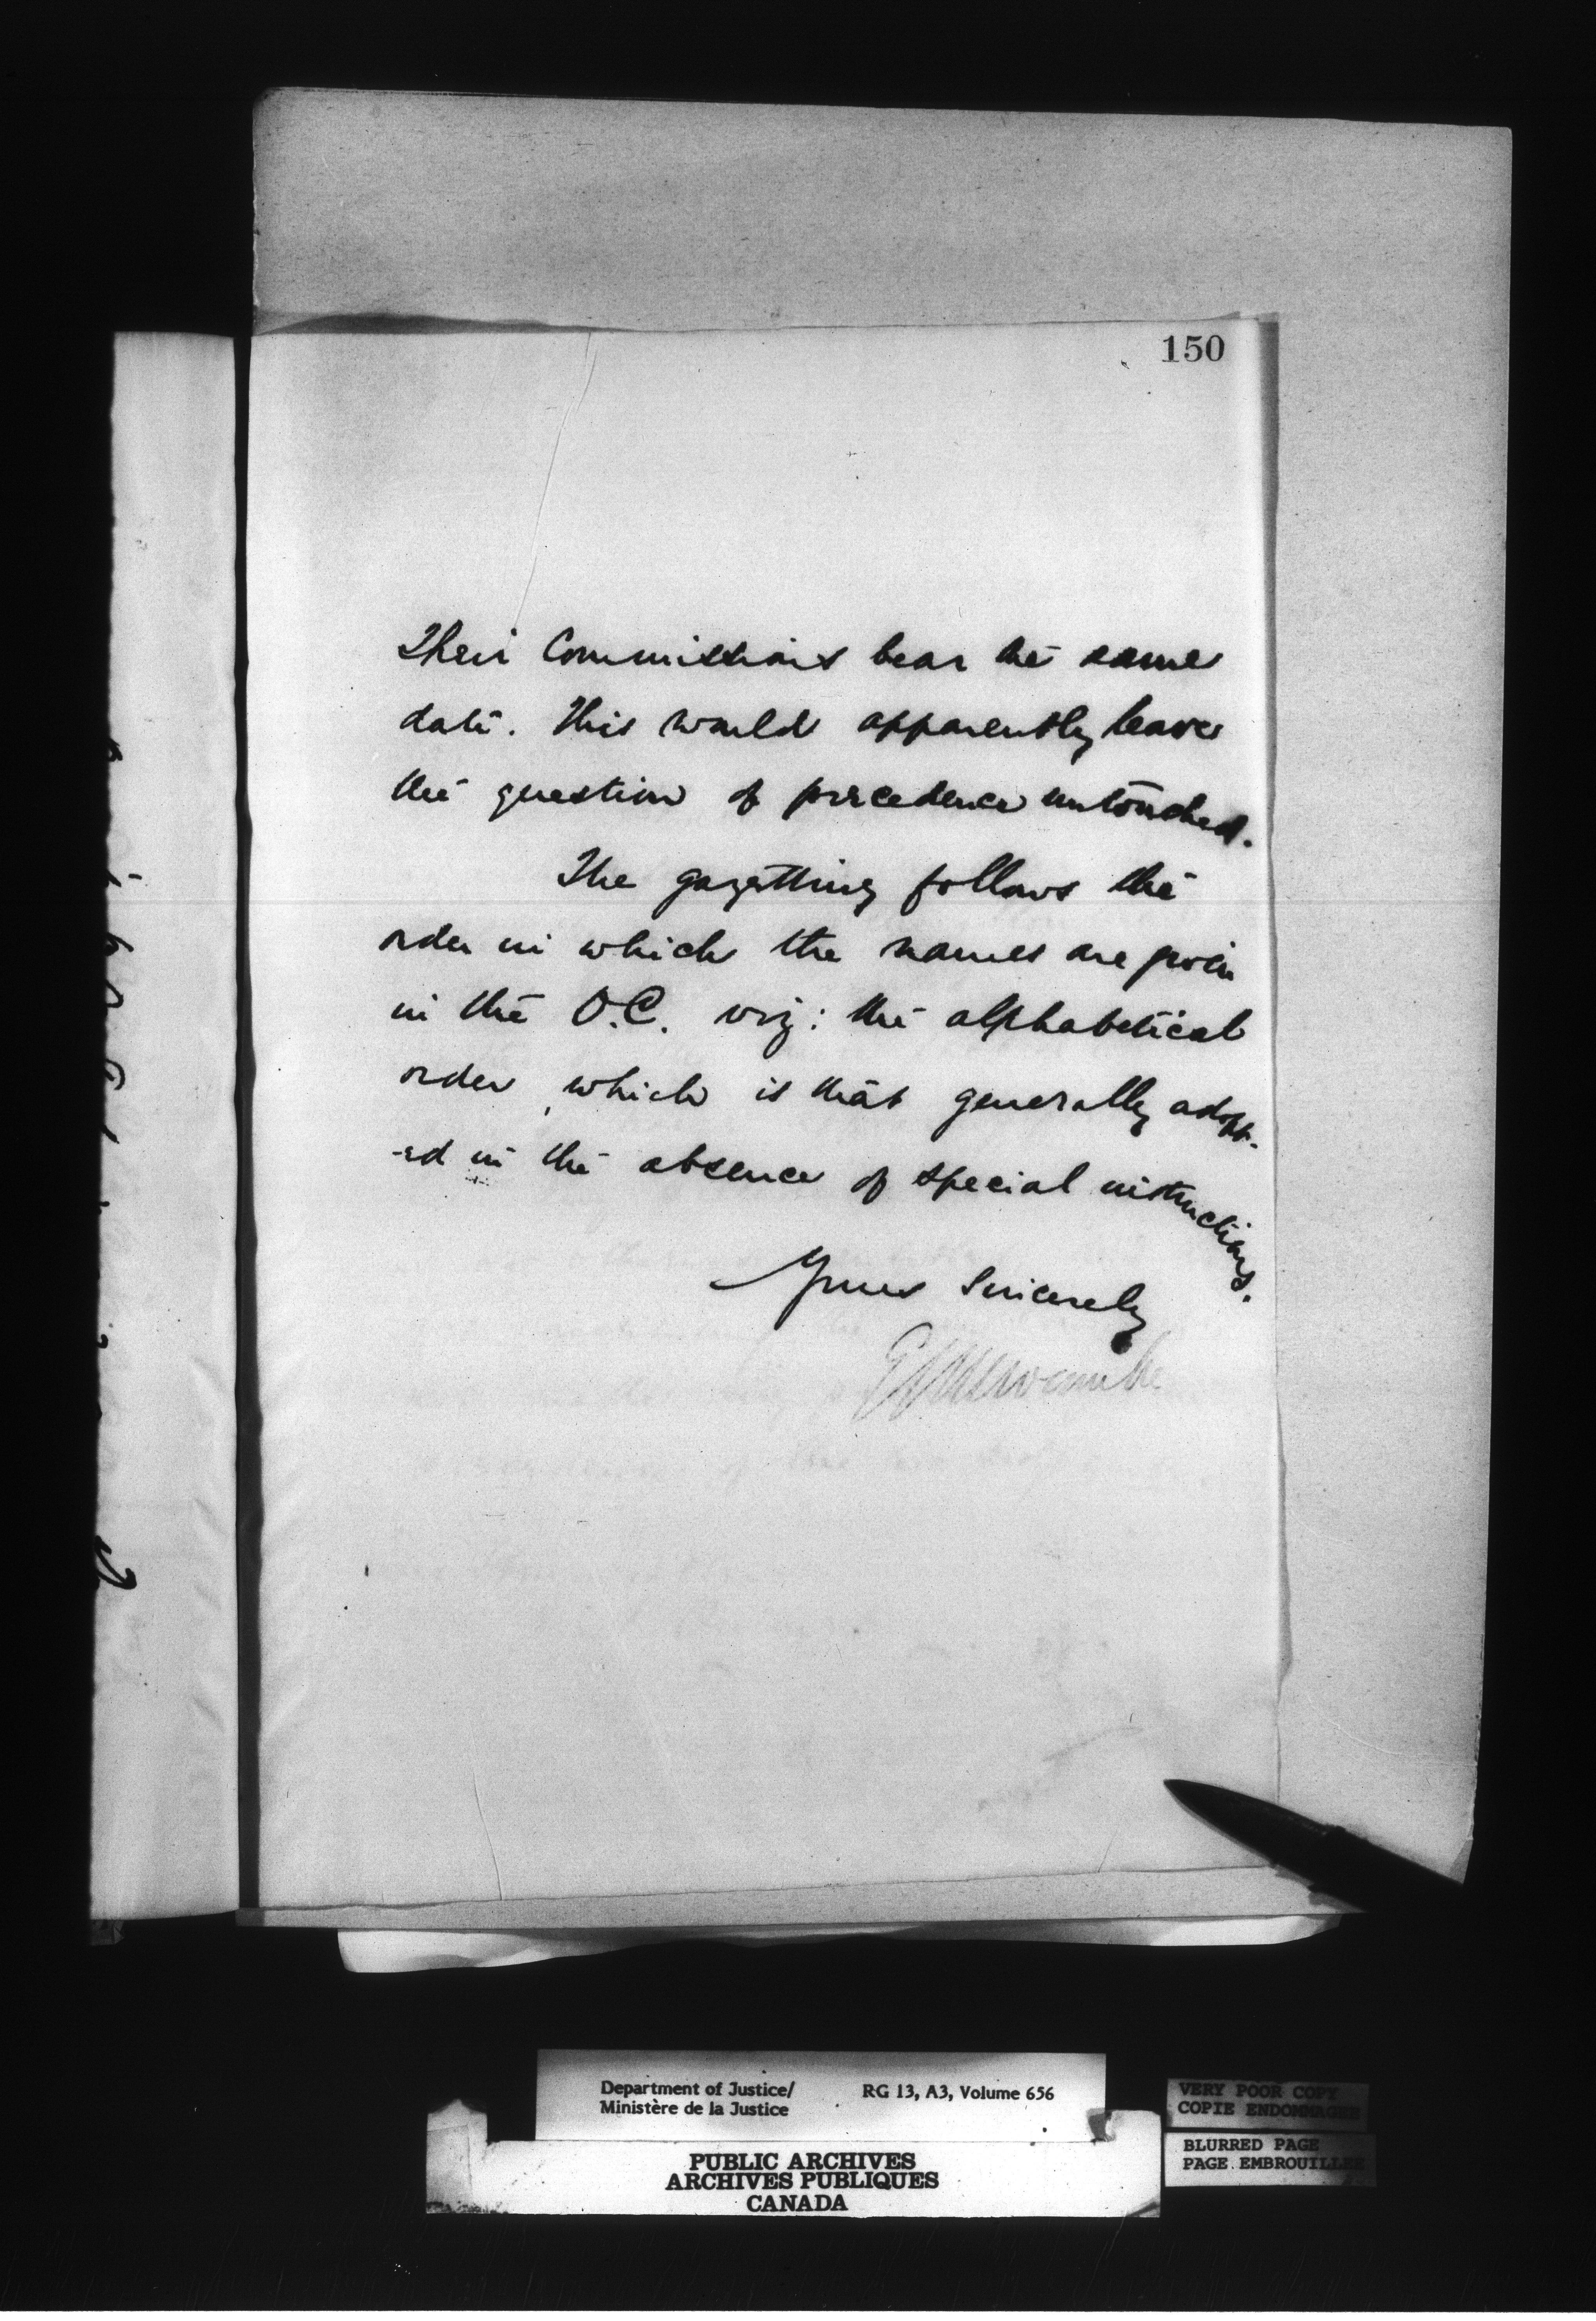 150
Their Commissions bear the same
date. This would apparently leave
the question of precedence untouched.
The gazetting follows the
order in which the names are given
in the O.C. viz: the alphabetical
order, which is that generally adopt-
-ed in the absence of special instructions.
Yours Sincerely
E L Newcombe
Department of Justice/
Ministère de la Justice
RG 13, A3, Volume 656
PUBLIC ARCHIVES
ARCHIVES PUBLIQUES
CANADA
VERY POOR COPY
COPIE ENDOMMAGEE
BLURRED PAGE
PAGE EMBROUILLEE